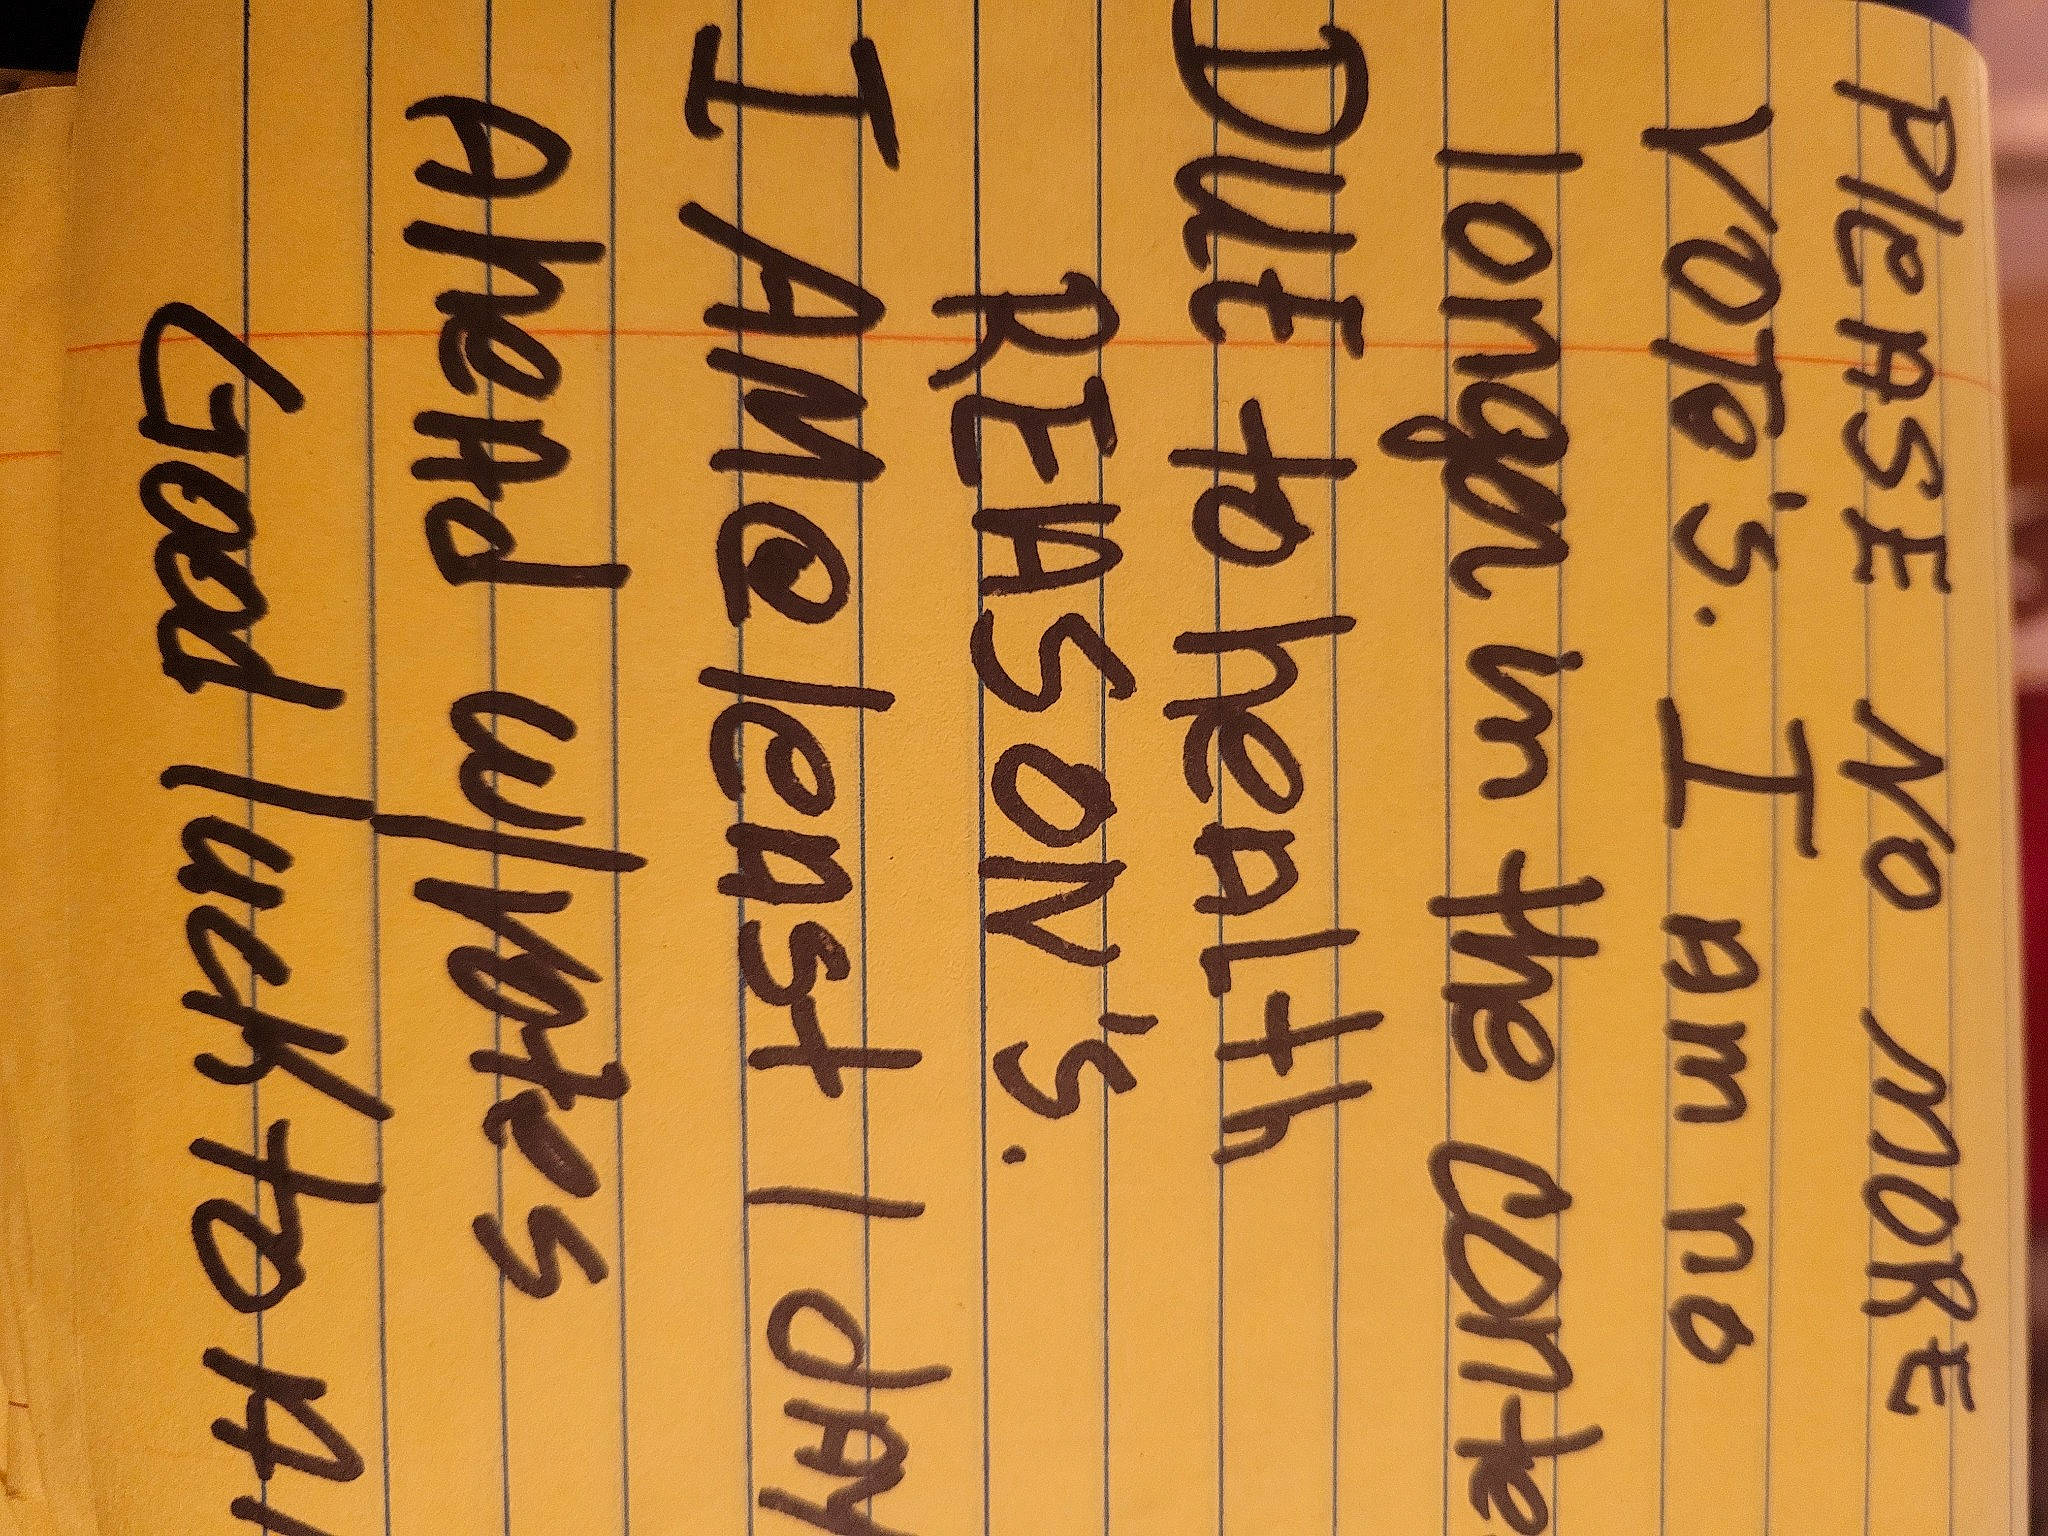 PleASE NO MORE
VOTe's. I Am no
longer in the conte
DUE to heALth
REASON'S.
I AM @ leAst 1 dAy
AheAd w/votes
Good luck to Al